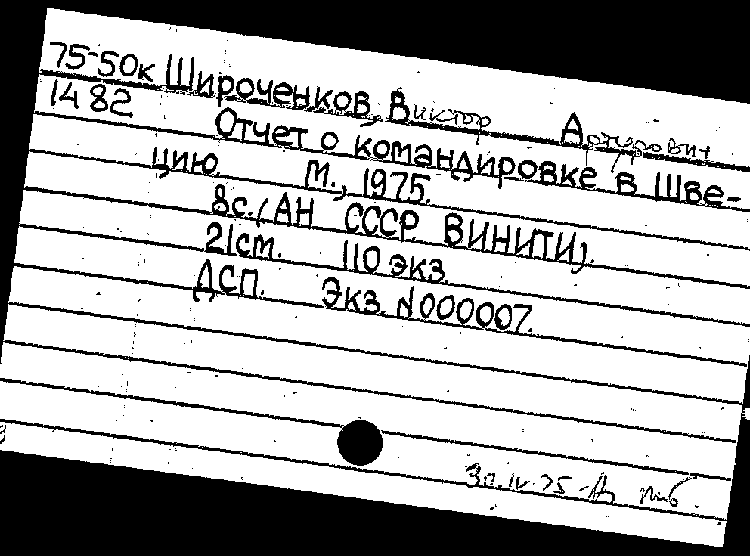 75-50к Широченков, Виктор Артурович
1482 Отчет о командировке в Шве-
цию. М., 1975.
8с. (АН СССР. ВИНИТИ).
21см. 110 экз.
ДСП. Экз. N000007.
30.IV.75